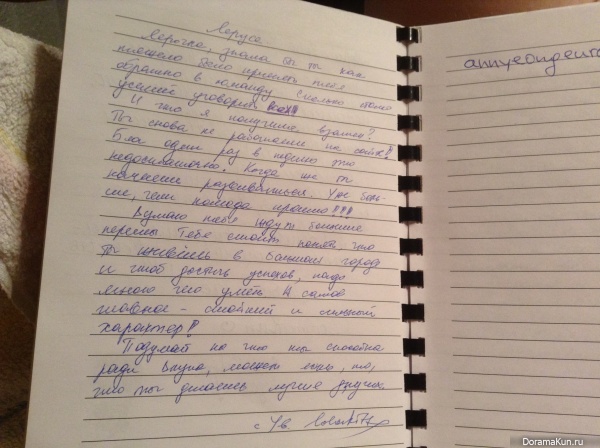 Лерусе
Лерочка, знала бы ты как
тяжело было принять тебя
обратно в команду. Сколько стоило
усилий уговорить
И что я получила взамен?
Ты снова не работаешь на сайте!!
Бла один раз в неделю это
недостаточно. Когда же ты
начнешь развиваться. Уже боль-
ше, чем полгода прошло!!!
Думаю тебя ждут большие
перемены Тебе стоит понять, что
Ты живёшь в большом городе
и чтоб достичь успехов, надо
много чего уметь И самое
главное - стойкий и сильный
характер!
Подумай на что ты способна
ради
что ты делаешь лучше других.
с Ув
annyeong
DoramaKun.ru